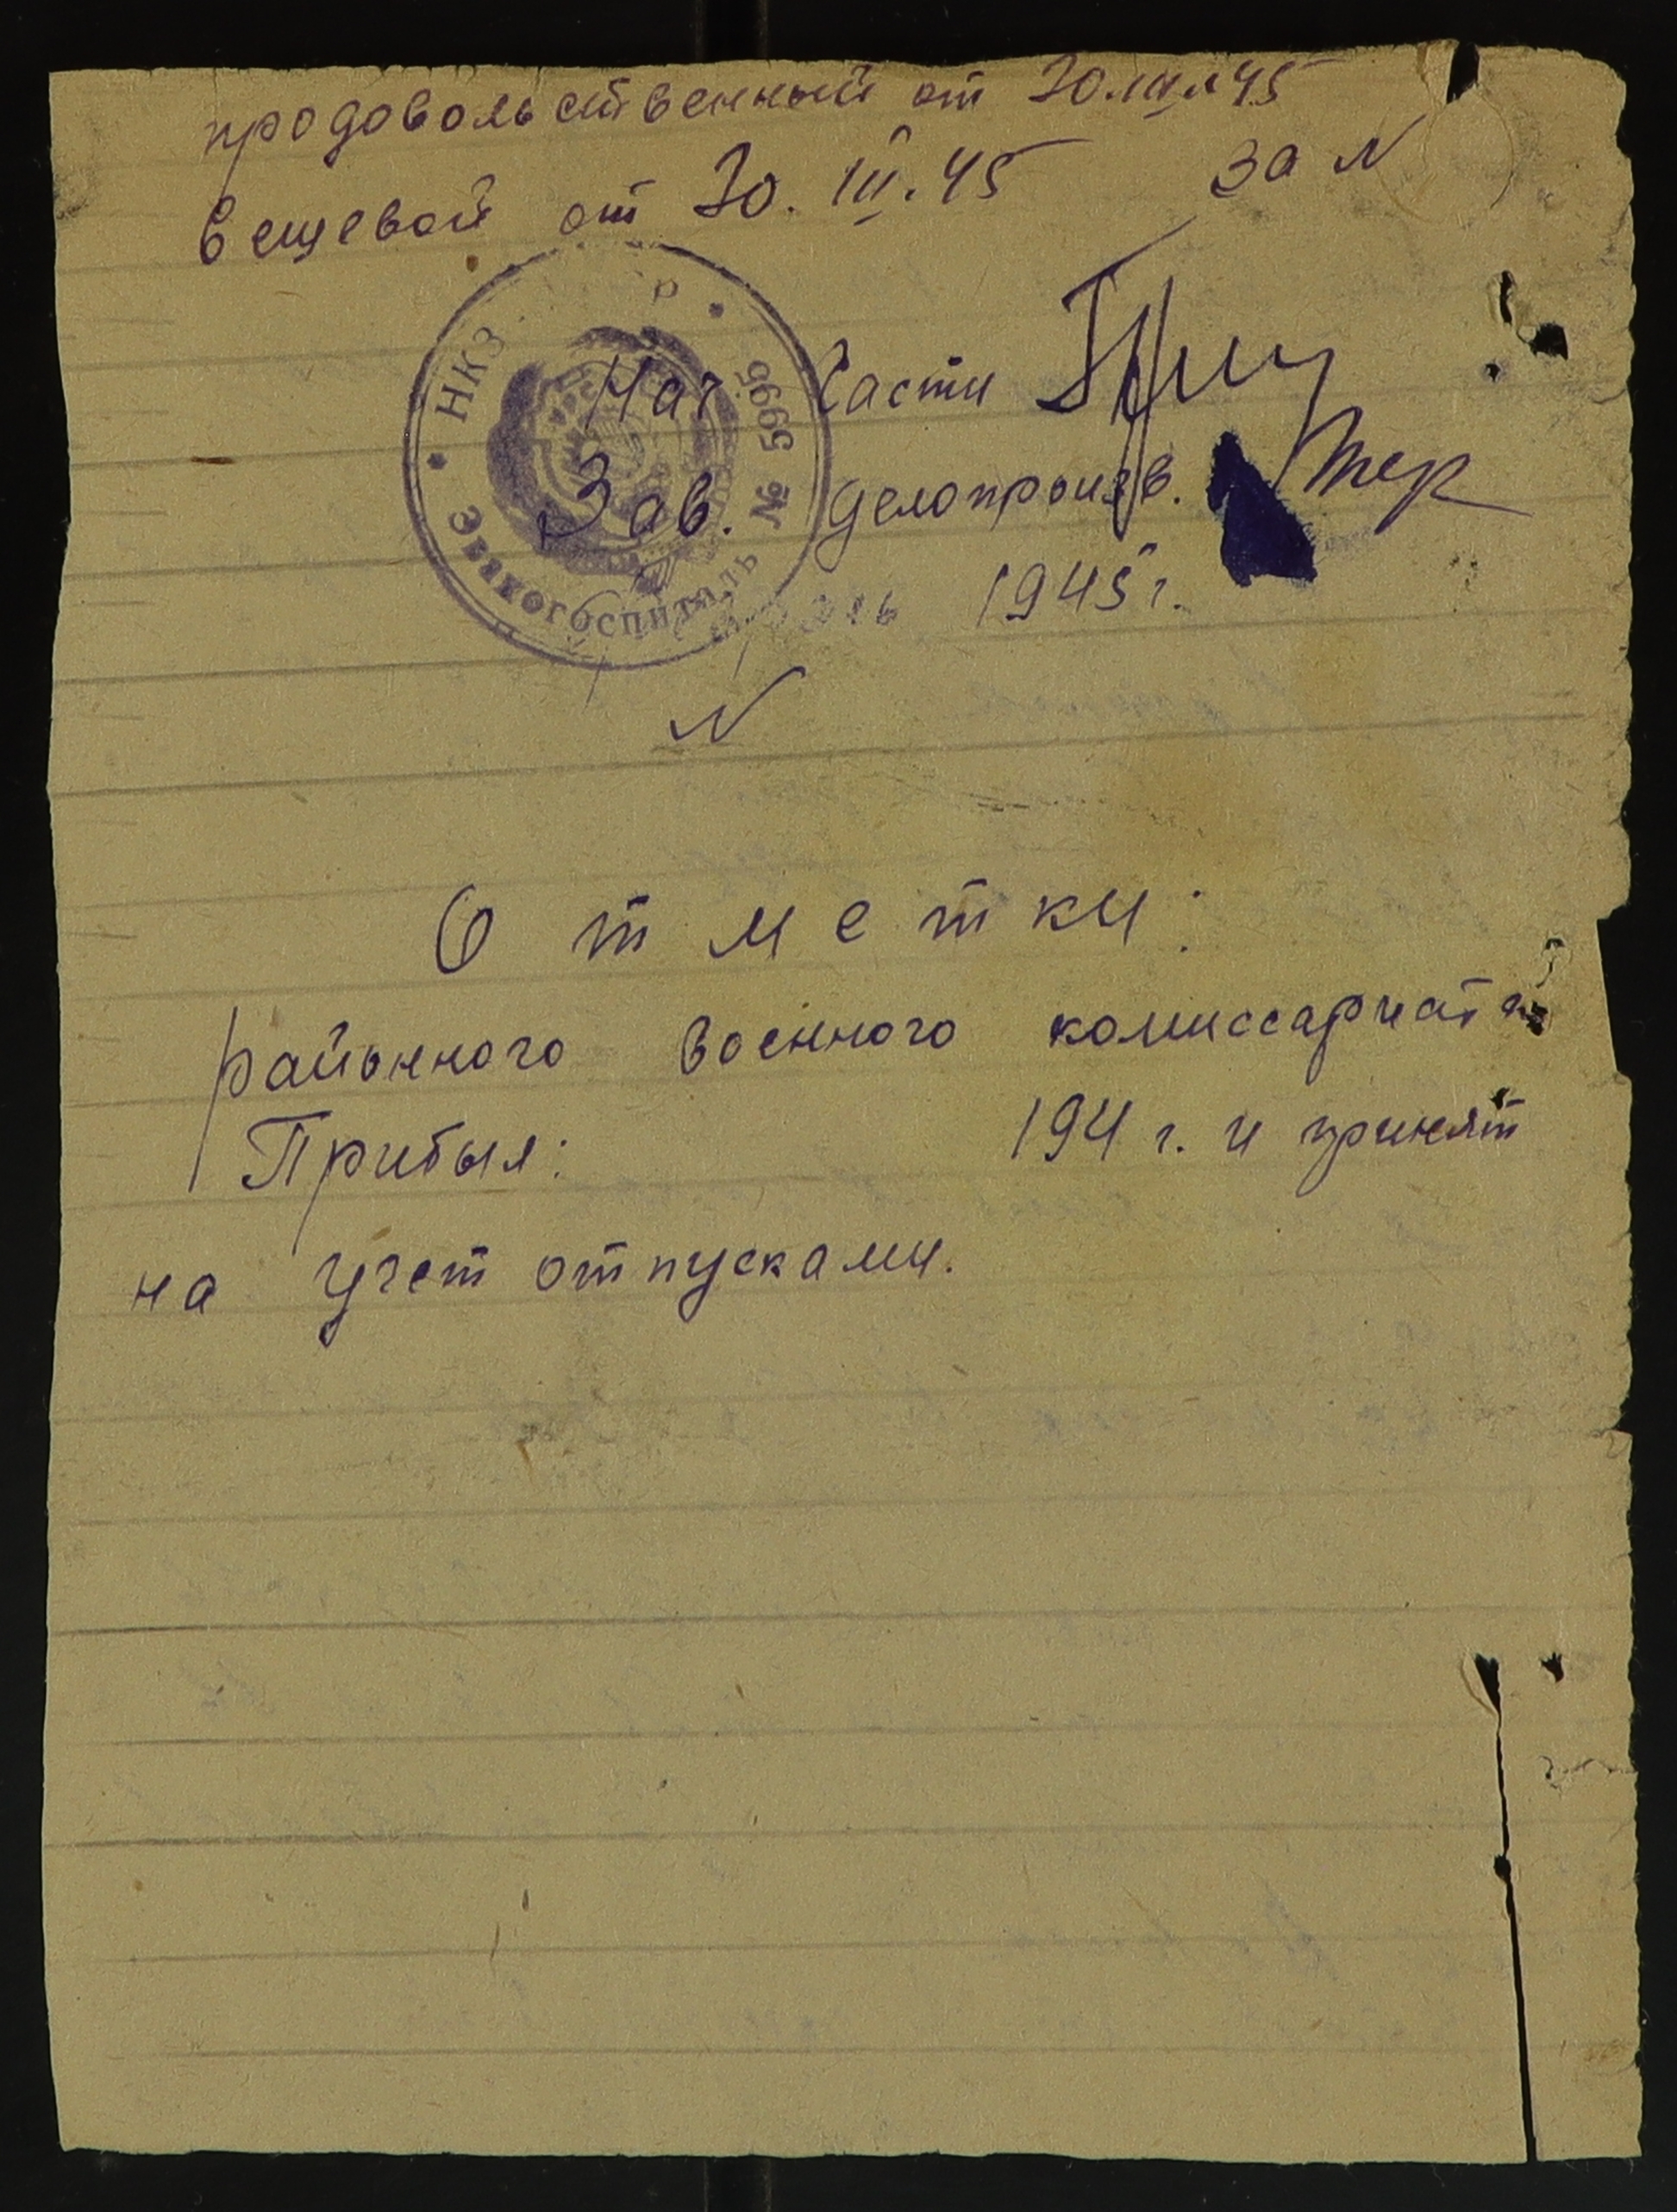 продовольственный от 30.III.45
вещевой от 30.III.45 за N
НКЗ Р
Эвакогоспиталь № 5995
Нач Части
Зав. делопроизв.
1945 г.
N
Отметки:
районного военного комиссариата
Прибыл: 194 г. и принят
на учет отпусками.